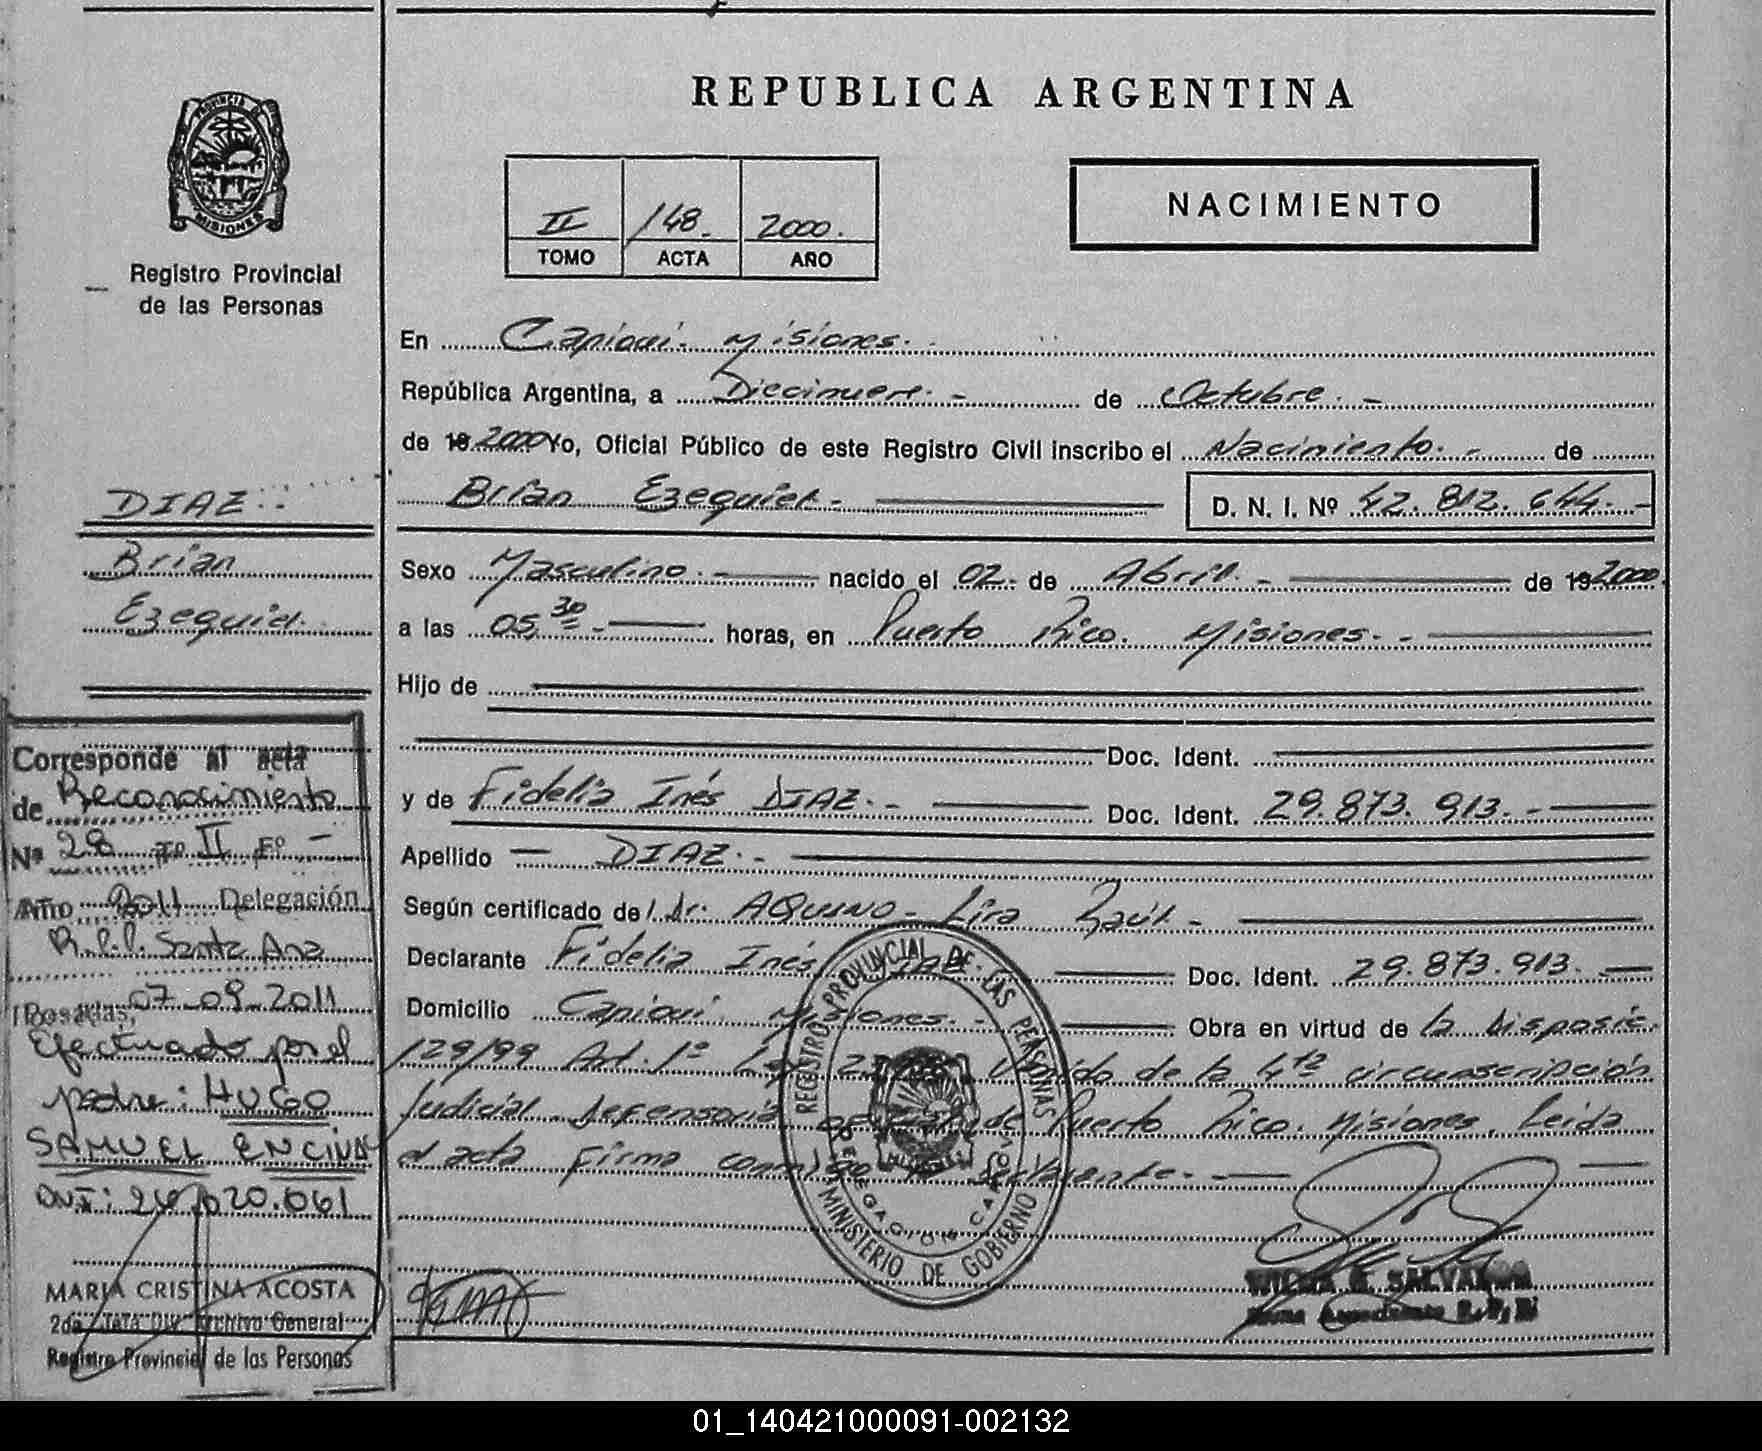 REPUBLICA ARGENTINA
PROVINCIA DE
MISIONES
Registro Provincial
de las Personas
II 148. 2000.
TOMO ACTA AÑO
NACIMIENTO
En Capioui. Misiones.
República Argentina, a Diecinueve. - de Octubre. -
de 19 2000 Yo, Oficial Público de este Registro Civil inscribo el Nacimiento. - de
Brian Ezequiel - D. N. I. Nº 42.812.644. -
DIAZ
Brian
Ezequiel
Sexo Masculino. - nacido el 02. de Abril. - de 19 2000.
a las 05,30 - horas, en Puerto Rico. Misiones. -
Hijo de
Doc. Ident.
y de Fidelia Inés DIAZ. - Doc. Ident. 29.873.913. -
Apellido — DIAZ. -
Según certificado del Dr. AQUINO - Lira Raúl -
Declarante Fidelia Inés DIAZ - Doc. Ident. 29.873.913.
Domicilio Capioui. Misiones. - Obra en virtud de la Disposic.
129/99 Art. 1º Ley de la 4ta circunscripción
Judicial. Defensoría de Puerto Rico. Misiones. Leida
el acta firma conmigo declarante. -
REGISTRO PROVINCIAL DE LAS PERSONAS
MINISTERIO DE GOBIERNO
DELEGACION CAPIOVI
MISIONES
Corresponde al acta
de Reconocimiento
Nº 28 Tº II Fº -
Año 2011 Delegación
R.P.P. Santa Ana
Posadas, 07-09-2011
Efectuado por el
padre: HUGO
SAMUEL ENCINA
DNI: 26.020.061
MARIA CRISTINA ACOSTA
Archivo General
Registro Provincial de las Personas
SALVADOR
01_140421000091-002132